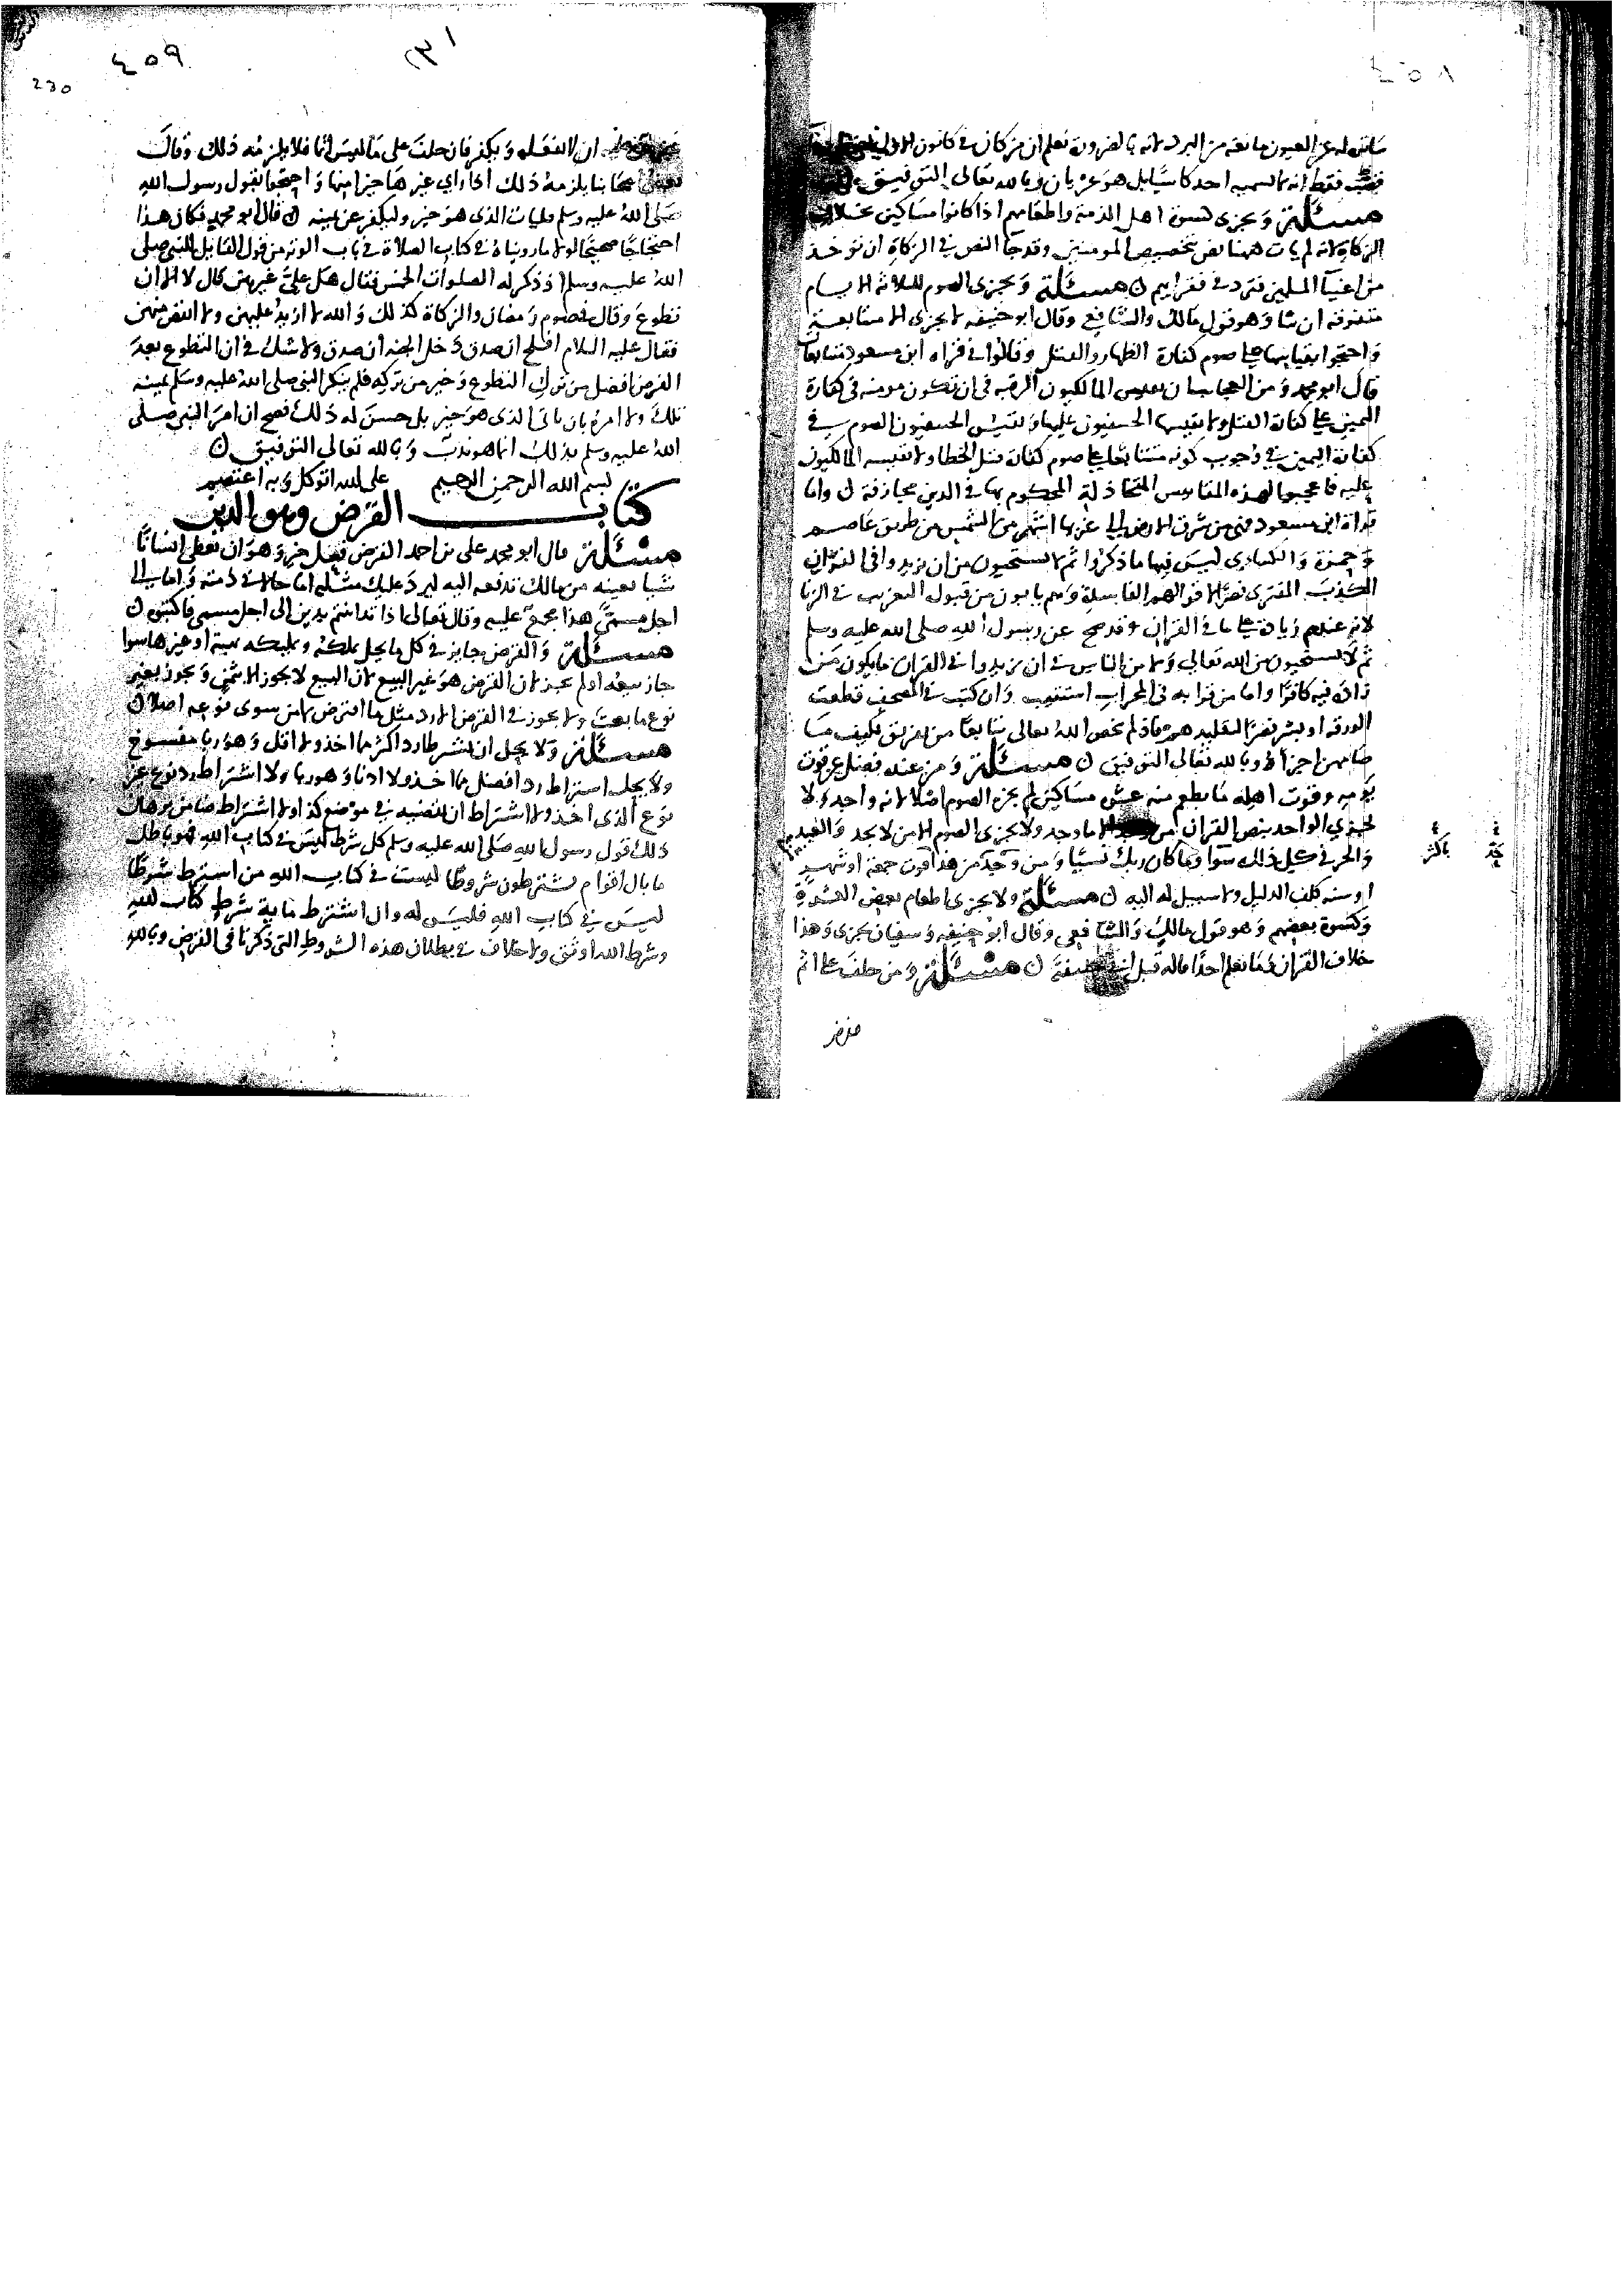 ٤٥٨
ساتر له عن العيون مانعة من البرد لانه بالضرورة نعلم ان من كان في كانون الاول
فقط انه لا يسميه احد كاسيا بل هو عريان وبالله تعالى التوفيق
مسئلة ويجزى كسوة اهل الذمة واطعامهم اذا كانوا مساكين بخلاف
الزكاة لانه لم يات ههنا نص بتخصيص المومنين وقد جا النص في الزكاة ان توخذ
من اغنيآ المسلمين فترد في فقرايهم ن مسئلة ويجزى الصوم للثلاثة الايام
متفرقة ان شا وهو قول مالك والشافعي وقال ابو حنيفه لا يجزى الا متتابعة
واحتجوا بقياسها على صوم كفارة الظهار والقتل وقالوا في قراه ابن مسعود متتابعات
قال ابو محمد ومن العجايب ان يقيس المالكيون الرقبه في ان تكون مومنه في كفارة
اليمين على كفارة القتل ولا يقيسها الحنفيون عليها ويقيس الحنفيون الصوم في
كفارة اليمين في وجوب كونه متتابعا على صوم كفارة قتل الخطا ولا يقيسه المالكيون
عليه فاعجبوا لهذه المقاييس المتخاذلة المحكوم بها في الدين مجازفة ن واما
قراة ابن مسعود فهي من شرق الارض الى غربها اشهر من الشمس من طريق عاصم
وحمزة والكساءى ليس فيها ما ذكروا ثم لا يستحيون من ان يزيدوا في القران
الكذب المفترى نصرا لاقوالهم الفاسدة وهم يابون من قبول التغريب في الزنا
لانه عندهم زيادة على ما في القران وقد صح عن رسول الله صلى الله عليه وسلم
ثم لا يستحيون من الله تعالى ولا من الناس في ان يزيدوا في القران ما يكون من
زاده فيه كافرا واما من قرا به في المحراب استتيب وان كتبه في المصحف قطعت
الورقه او بشر نصرا لتقليدهم فاذ لم يخص الله تعالى تتابعا من تفريق فكيف ما
صامهن اجزاه وبالله تعالى التوفيق ن مسئلة ومن عنده فضل عن قوت
يومه وقوت اهله ما يطعم منه عشرة مساكين لم يجزه الصوم اصلا لانه واجد ولا
يجزي الواجد بنص القران الا ما وجد ولا يجزى الصوم الا من لا يجد والعبد
والحر في كل ذلك سوآ وما كان ربك نسيا ومن حد من هذا قوت جمعة او شهر
او سنه كلف الدليل ولا سبيل له اليه ن مسئلة ولا يجزى اطعام بعض العشرة
وكسوة بعضهم وهو قول مالك والشافعي وقال ابو حنيفه وسفيان يجزى وهذا
خلاف القران وما نعلم احدا قاله قبل ابي حنيفة ن مسئلة ومن حلف على اثم
٤٥٩
230
ان لا يفعله ويكفر فان حلف على ما ليس اثما فلا يلزمه ذلك وقال
بعض اصحابنا يلزمه ذلك اذا راى غيرها خيرا منها واحتجوا بقول رسول الله
صلى الله عليه وسلم فليات الذى هو خير وليكفر عن يمينه ن قال ابو محمد فكان هذا
احتجاجا صحيحا لولا ما رويناه في كتاب الصلاة في باب الوتر من قول القايل للنبي صلى
الله عليه وسلم اذ ذكر له الصلوات الخمس فقال هل علي غيرهن قال لا الا ان
تطوع وقال في صوم رمضان والزكاة كذلك والله لا ازيد عليهن ولا انقص منهن
فقال عليه السلام افلح ان صدق دخل الجنه ان صدق ولا شك في ان التطوع بعد
الفرض افضل من ترك التطوع وخير من تركه فلم ينكر النبى صلى الله عليه وسلم يمينه
تلك ولا امره بان ياتى الذى هو خير بل حسن له ذلك فصح ان امر النبي صلى
الله عليه وسلم بذلك انما هو ندب وبالله تعالى التوفيق ن
بسم الله الرحمن الرحيم على الله اتوكل وبه اعتصم
كتاب القرض وهو الدين
مسئلة قال ابو محمد على بن احمد القرض فعل خير وهو ان تعطى انسانا
شيا بعينه من مالك تدفعه اليه ليرد عليك مثله اما حالا في ذمته واما الى
اجل مسمى هذا مجمع عليه وقال تعالى اذا تداينتم بدين الى اجل مسمى فاكتبوه ن
مسئلة والقرض جايز في كل ما يحل تملكه وتمليكه بهبة او غيرها سوا
جاز بيعه او لم يجز لان القرض هو غير البيع لان البيع لا يجوز الا بثمن ويجوز بغير
نوع ما بعت ولا يجوز في القرض الا رد مثل ما اقترض لا من سوى نوعه اصلا ن
مسئلة ولا يحل ان يشترط رد اكثر مما اخذ ولا اقل وهو ربا مفسوخ
ولا يحل اشتراط رد افضل مما اخذ ولا ادنا وهو ربا ولا اشتراط رد نوع غير
نوع الذى اخذ ولا اشتراط ان يقضيه في موضع كذا ولا اشتراط ضامن برهان
ذلك قول رسول الله صلى الله عليه وسلم كل شرط ليس في كتاب الله فهو باطل
ما بال اقوام يشترطون شروطا ليست في كتاب الله من اشترط شرطا
ليس في كتاب الله فليس له وان اشترط ماية شرط كتاب الله
وشرط الله اوثق ولا خلاف في بطلان هذه الشروط التى ذكرنا في القرض وبالله